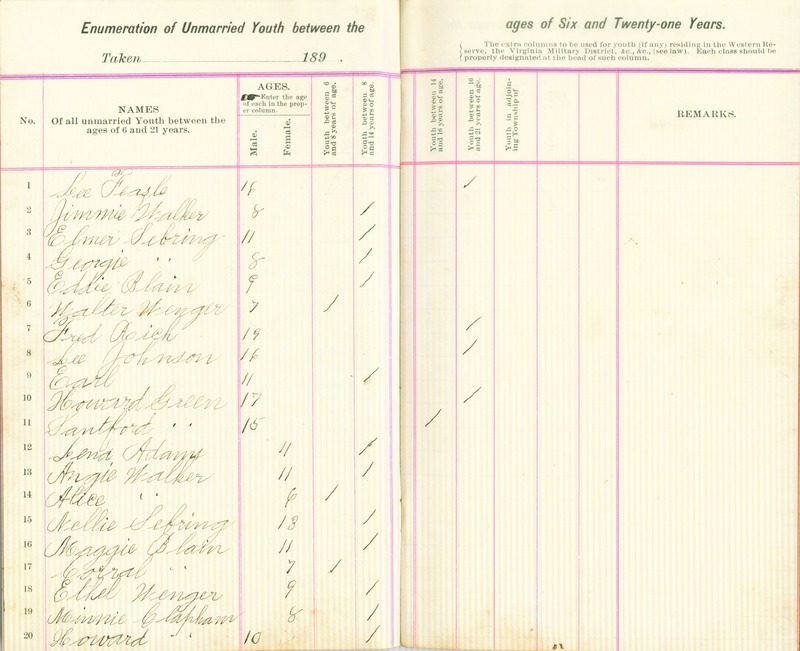 Enumeration of Unmarried Youth between the ages of Six and Twenty-one Years.
Taken 189 .
{ The extra columns to be used for youth (if any) residing in the Western Re-
serve, the Virginia Military District, &c., &c., (see law). Each class should be
properly designated at the head of such column.
No.
NAMES
Of all unmarried Youth between the
ages of 6 and 21 years.
AGES.
☛ Enter the age
of each in the prop-
er column.
Male.
Female.
Youth between 6
and 8 years of age.
Youth between 8
and 14 years of age.
Youth between 14
and 16 years of age.
Youth between 16
and 21 years of age.
Youth in adjoin-
ing Township of
REMARKS.
1 Lee Feasle 16 /
2 Jimmie Walker 8 /
3 Elmer Sebring 11 /
4 Georgie " 8 /
5 Eddie Blain 9 /
6 Walter Wenger 7 /
7 Fred Rich 19 /
8 Lee Johnson 16 /
9 Earl 11 /
10 Howard Green 17 /
11 Santford " 15 /
12 Lena Adams 11 /
13 Angie Walker 11 /
14 Alice " 6 /
15 Nellie Sebring 13 /
16 Maggie Blain 11 /
17 Corral " 7 /
18 Ethel Wenger 9 /
19 Minnie Clapham 8 /
20 Howard " 10 /